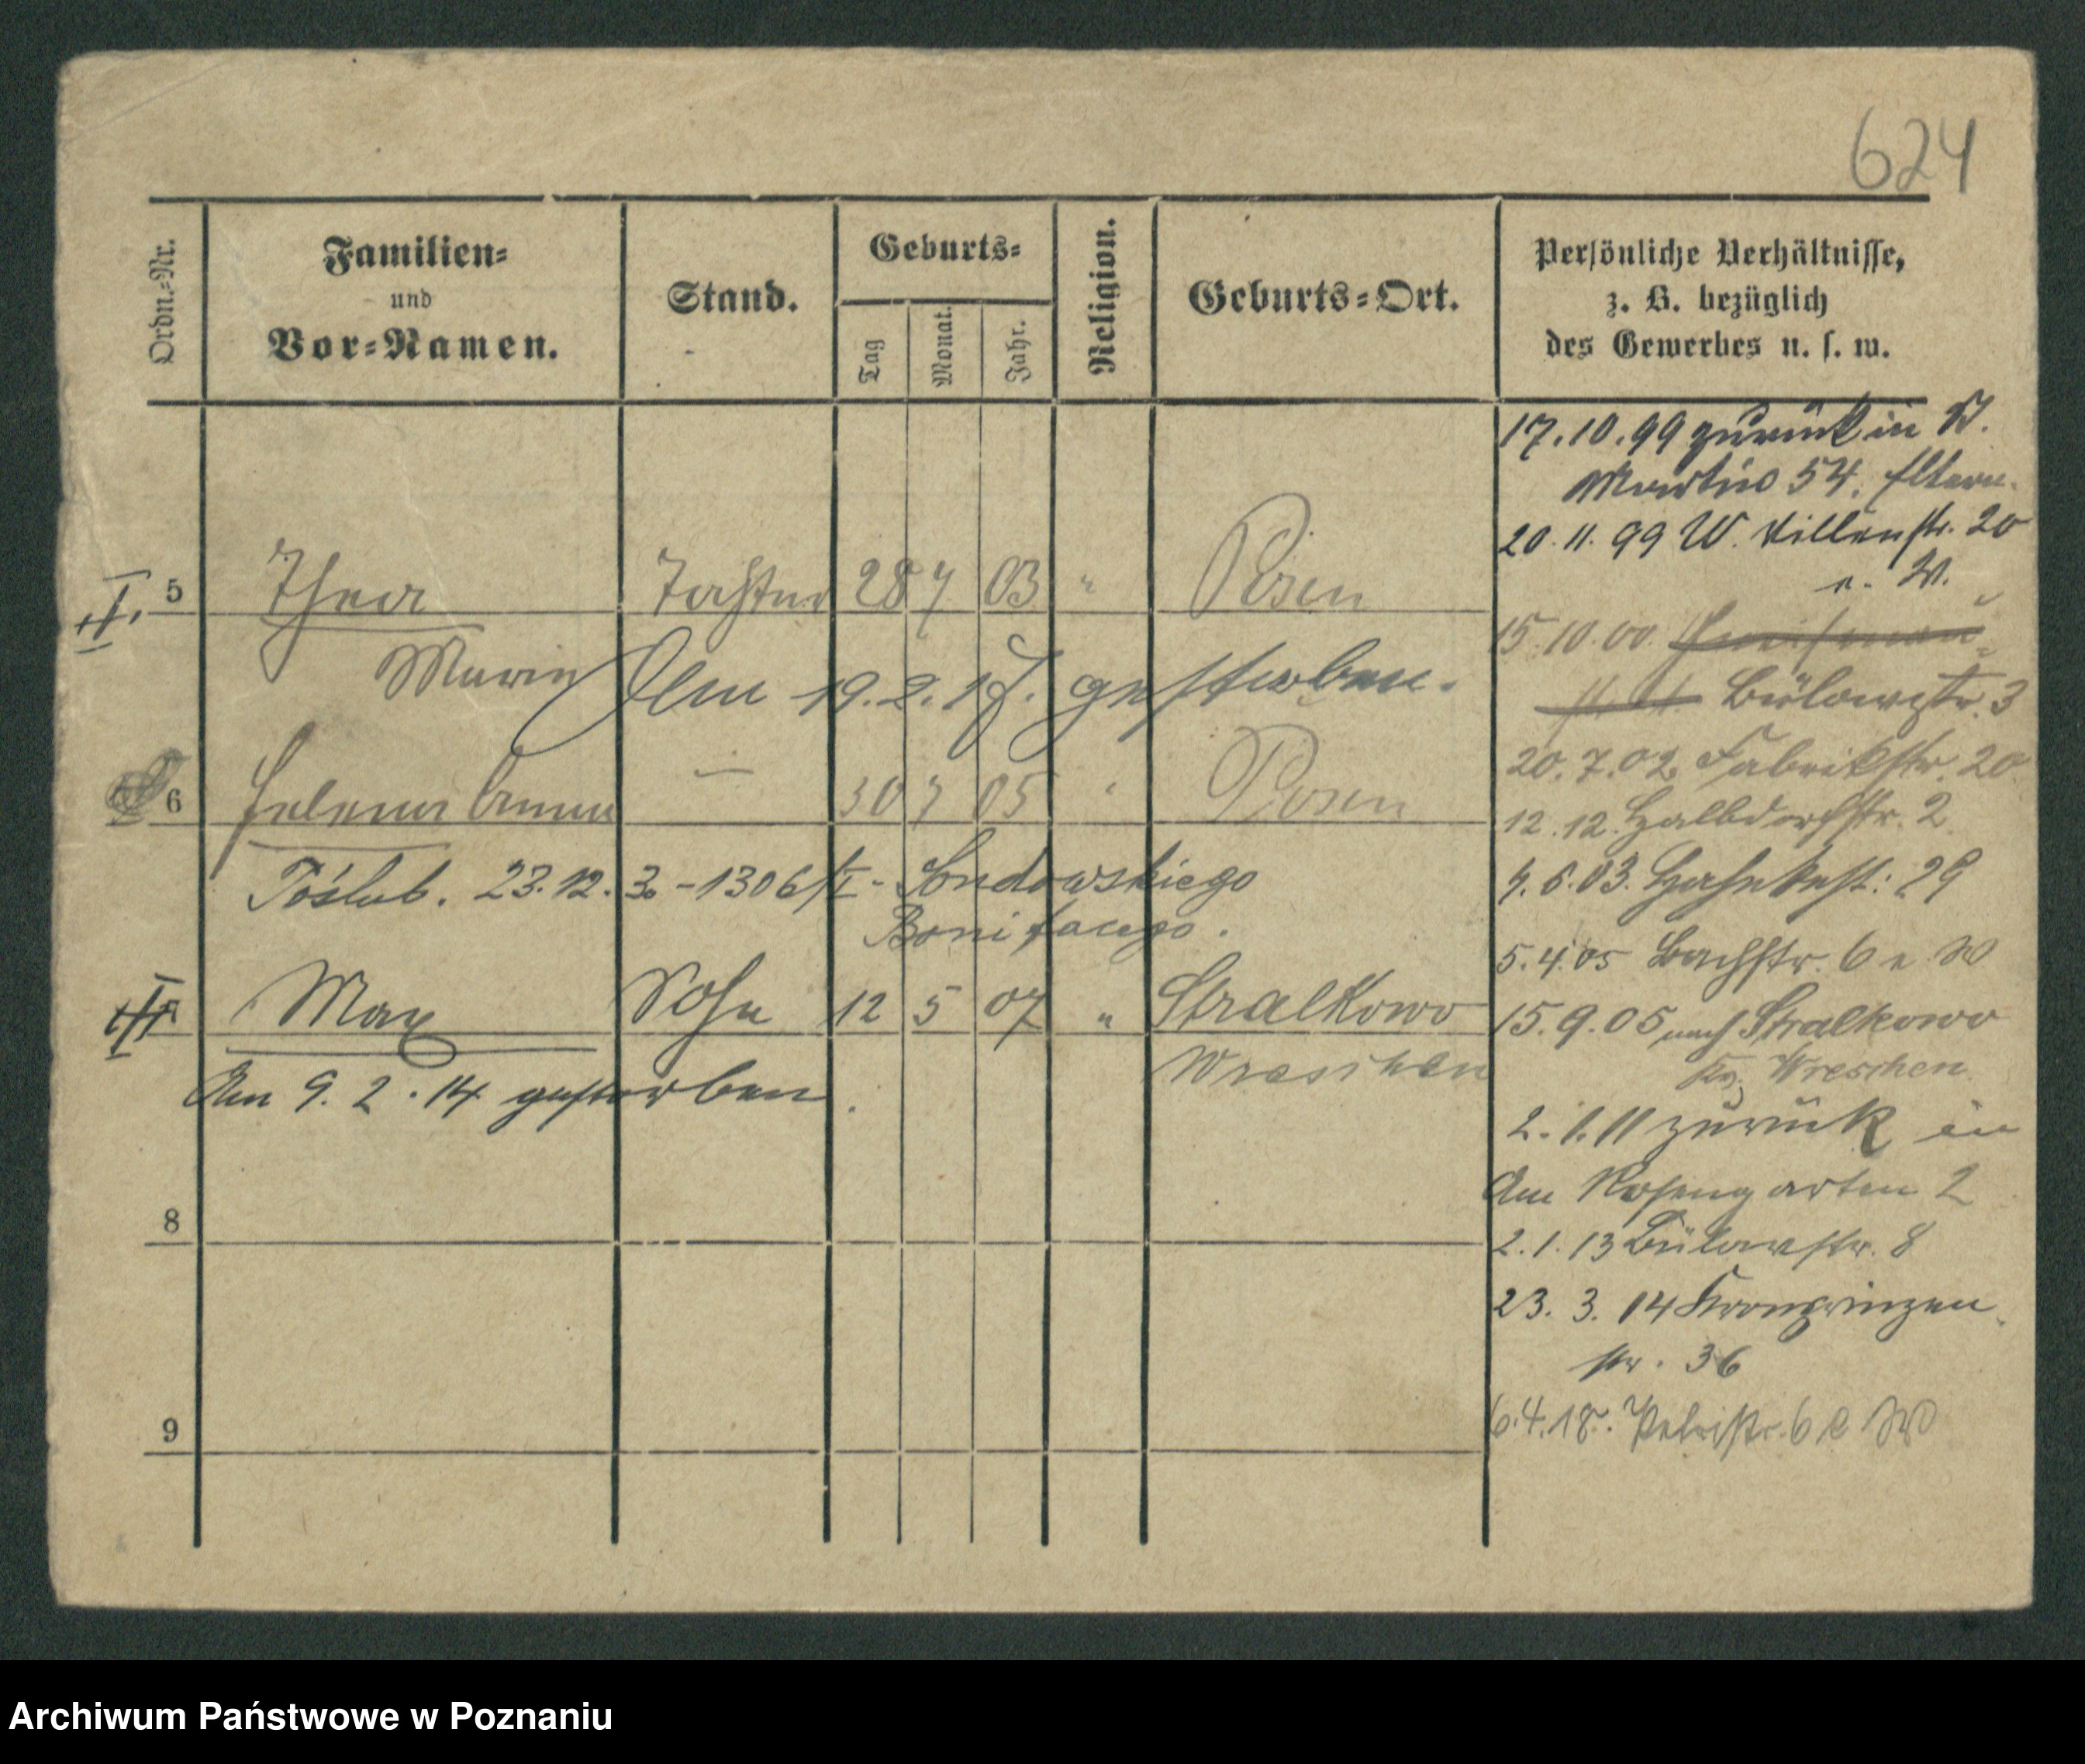 624
Ordn.=Nr.
Familien=
und
Vor=Namen.
Stand.
Geburts=
Tag
Monat.
Jahr.
Religion.
Geburts=Ort.
Persönliche Verhältnisse,
z. B. bezüglich
des Gewerbes u. s. w.
17.10.99 zurück in St.
Martin 54, Eltern.
20.11.99 W. Villenstr. 20
e. W.
5 Thea Tochter 28 7 03 " Posen
15.10.00.
Maria Am 19.2.17. gestorben.
Bülowstr. 3
20.7.02 Fabrikstr. 20
6 Helena Anna — 30 7 05 " Posen
12.12. Halbdorfstr. 2
Poślub. 23.12.30 - 1306/I - Sondowskiego
Bonifacego.
4.6.03. 29
5.4.05 Bachstr. 6 e. W
Max Sohn 12 5 07 " Stralkowo
15.9.05 nach Stralkowo
Wreschen
Kr. Wreschen
Am 9.2.14 gestorben.
2.1.11 zurück in
Am Rosengarten 2
8
2.1.13 Bülowstr. 8
23.3.14 Kronprinzen
str. 36
9
6.4.18. Petristr. 6 e W
Archiwum Państwowe w Poznaniu